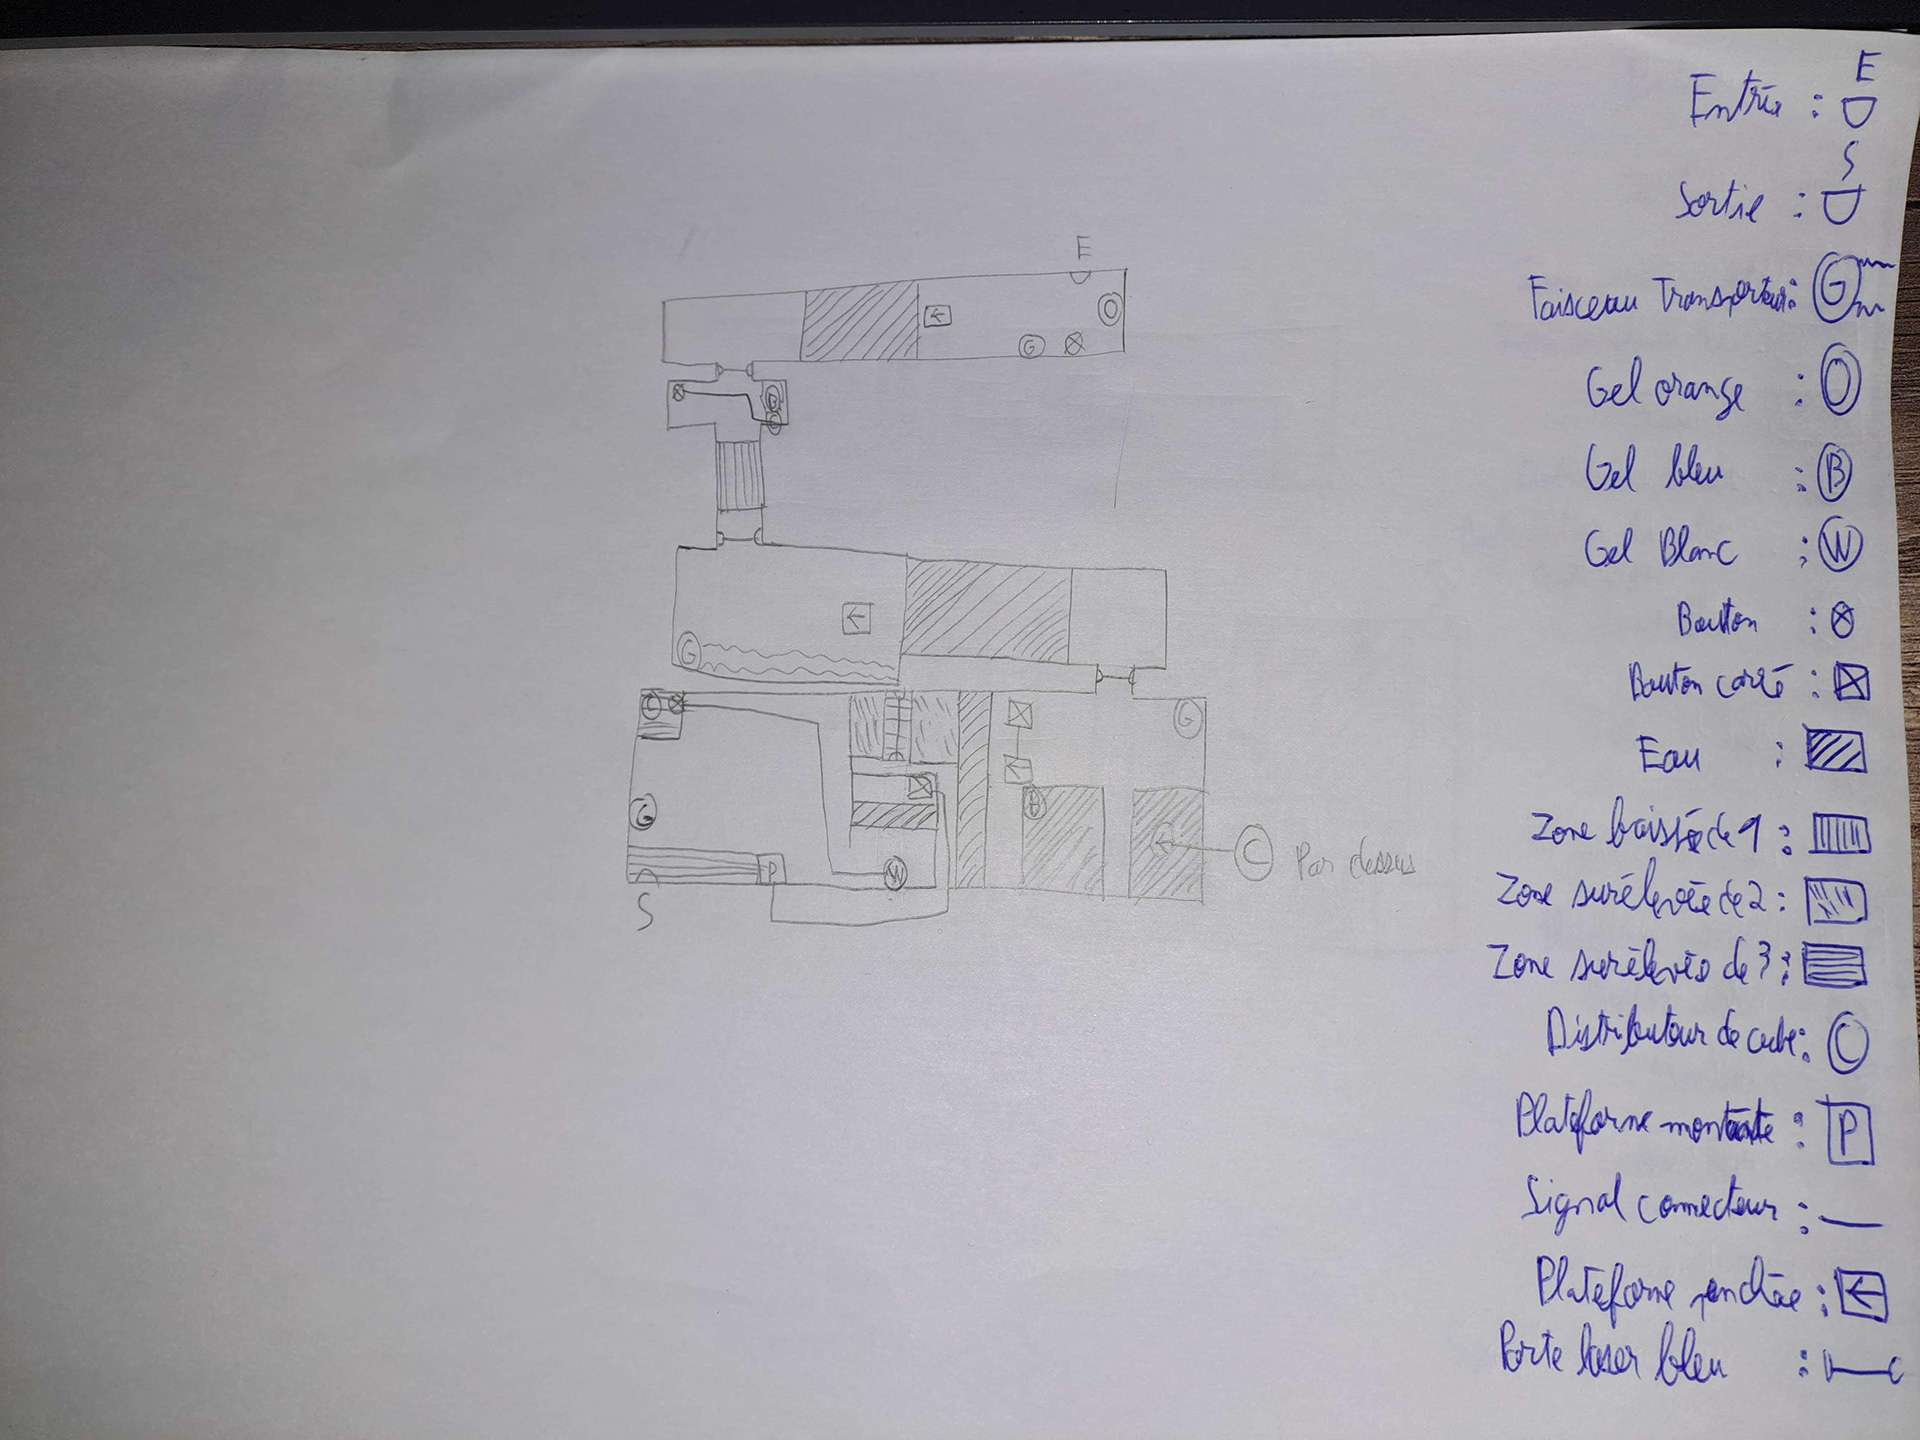 E
Entrée :
S
Sortie :
Faisceau Transporteur: G
Gel orange : O
Gel bleu : B
Gel Blanc : W
Bouton :
Bouton carré :
Eau :
Zone baissée de 1 :
Zone surélevée de 2 :
Zone surélevée de 3 :
Distributeur de cube: C
Plateforme montante : P
Signal connecteur :
Plateforme penchée :
Porte laser bleu :
E
O
G
B
G
C
G
G
B
C Par dessus
P
W
S